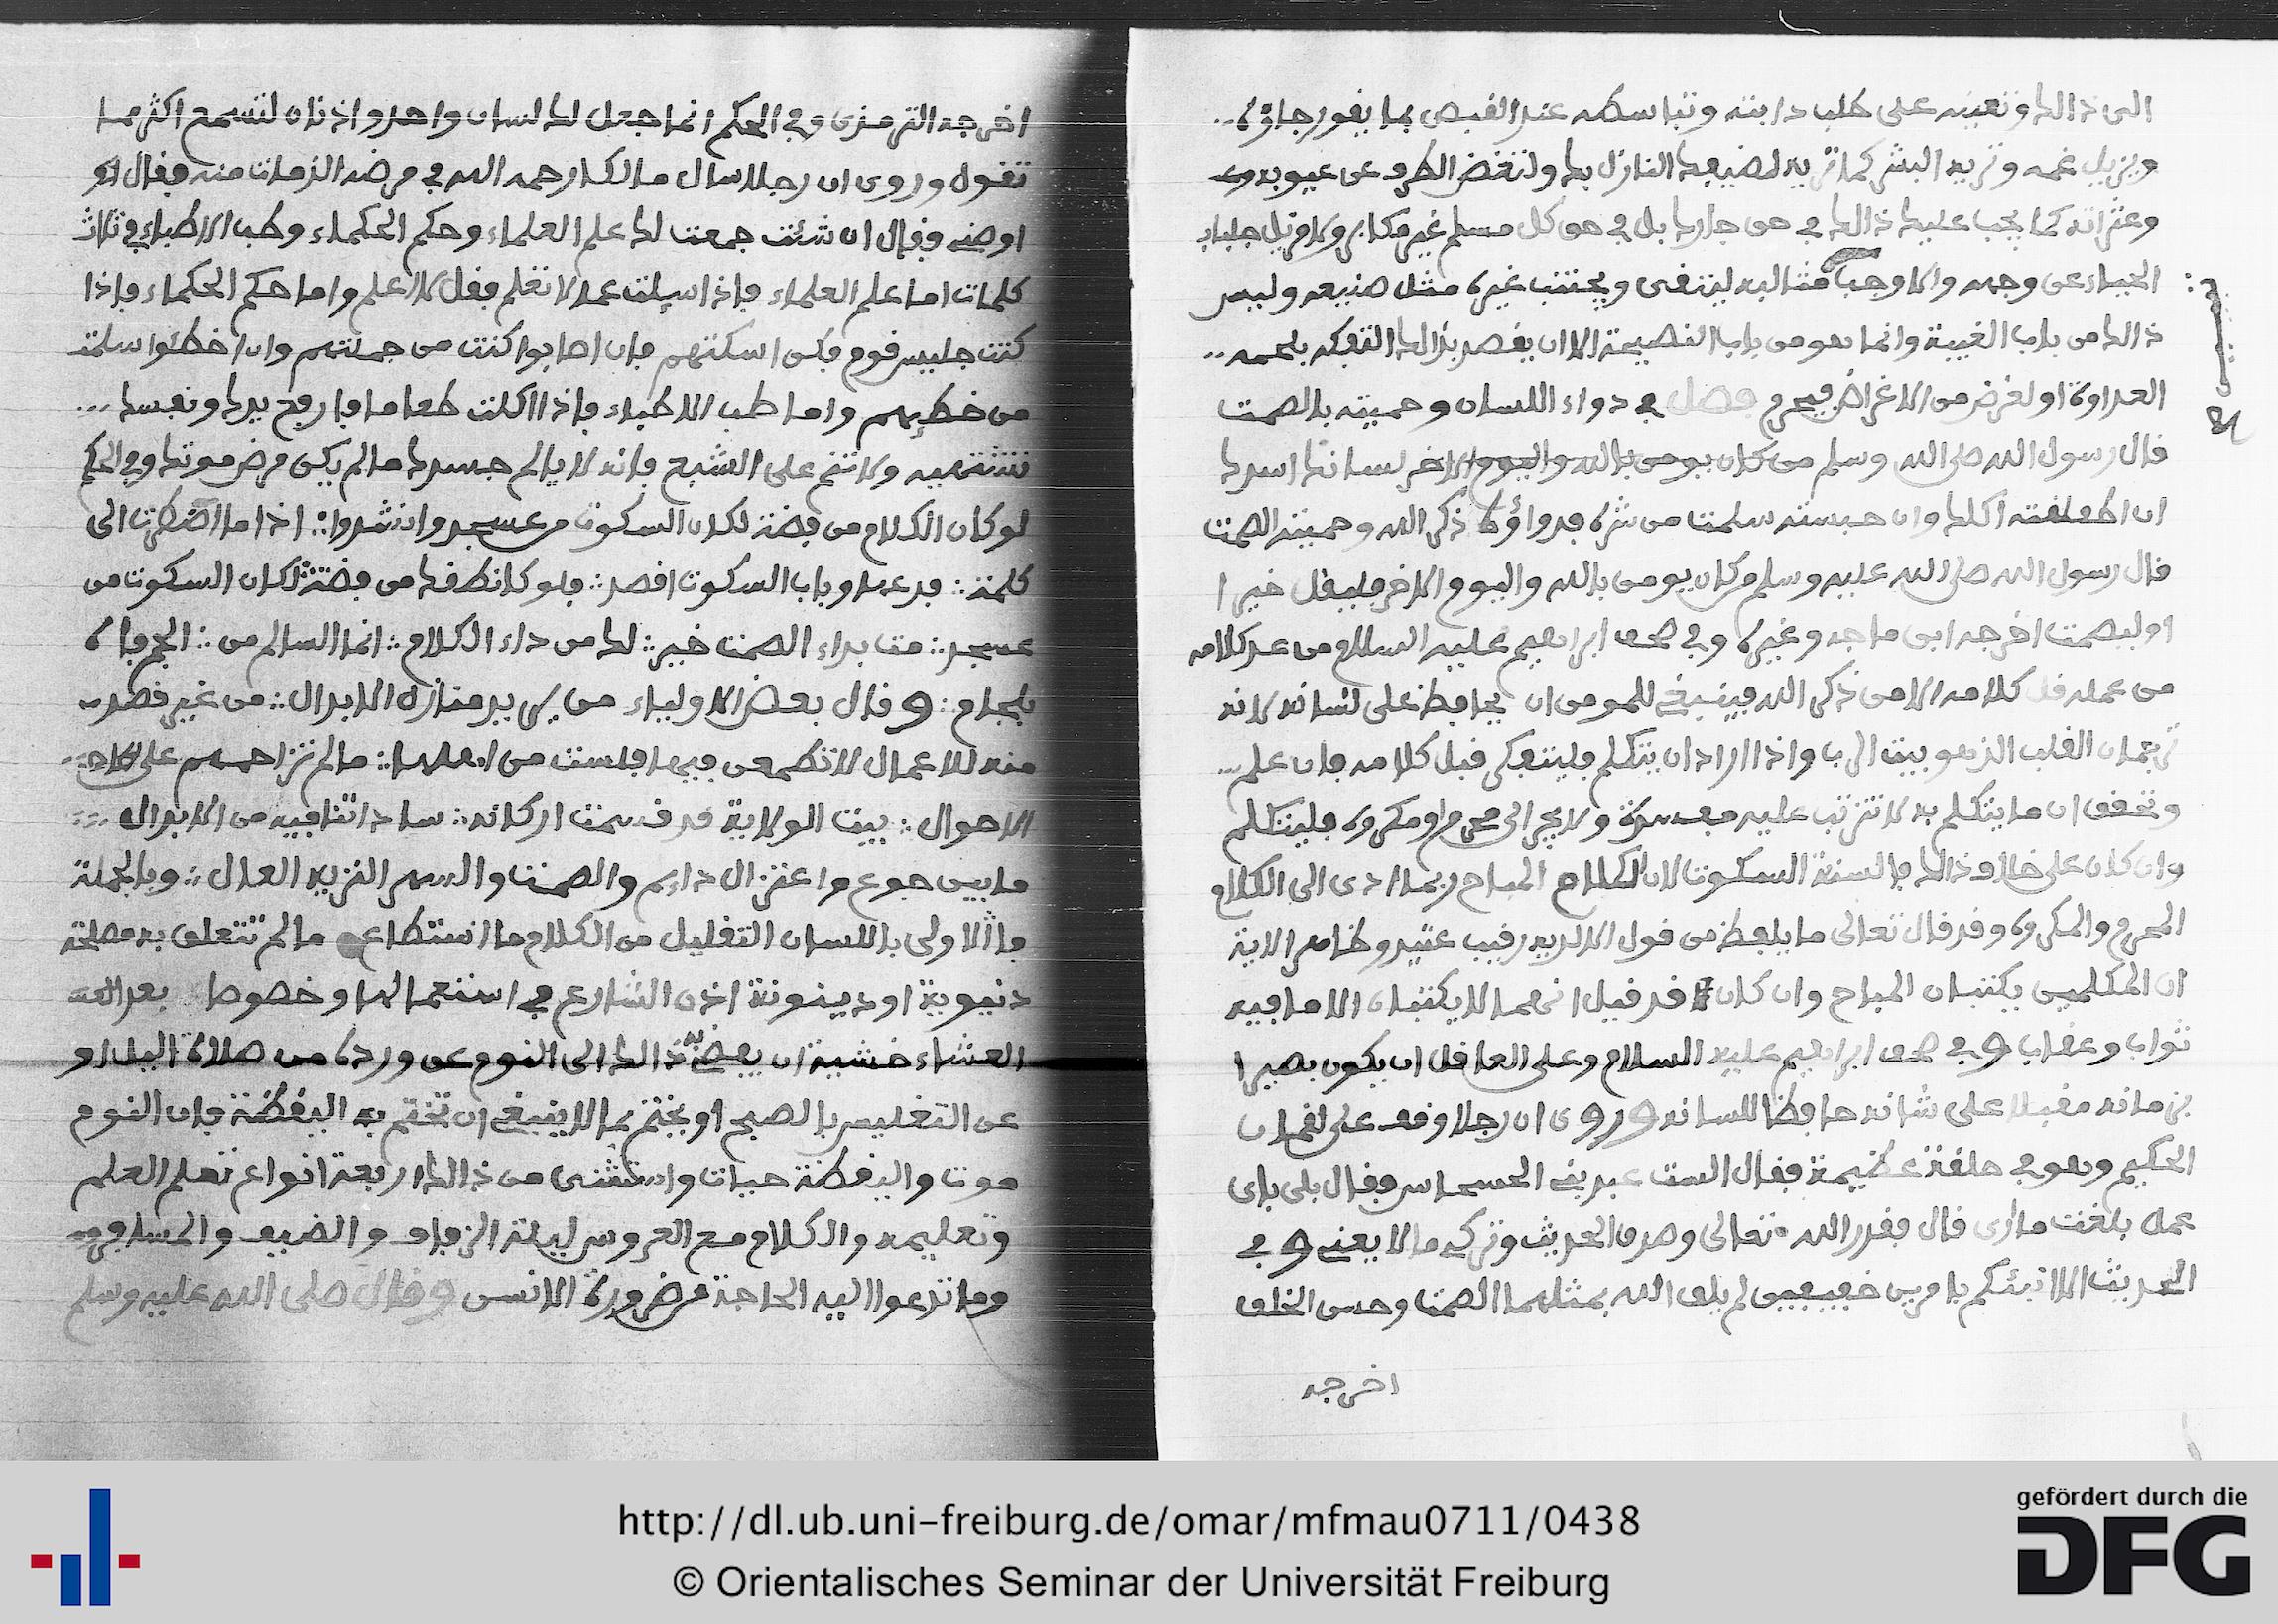 الى ذالك وتعينه على طلب دابته وتباسطه عند القبض بما يفور جاره
ويزيل غمه وتريه البشر كما تريه لضيفك النازل بك ولتغض الطرف عن عيوبه
وعثراته كما يجب عليك ذالك في حق جارك بل في حق كل مسلم غير مكابر ولا مزيل جلباب
الحياء عن وجهه والا وجب مثالبه ليتقى ويجتنب غيره مثل صنيعه وليس
ذالك من باب الغيبة وانما هو من باب النصيحة الا ان يقصد بذالك التفكه بلحمه
العداوة او لغرض من الاغراض فيحرم فصل في دواء اللسان وحميته بالصمت
قال رسول الله صلى الله وسلم من كان يومن بالله واليوم الاخر لسانك اسدك
ان اطلقته اكلك وان حبسته سلمت من شره فدواؤه ذكر الله وحميته الصمت
قال رسول الله صلى الله عليه وسلم من كان يومن بالله واليوم الاخر فليقل خيرا
او ليصمت اخرجه ابن ماجه وغيره وفي صحف ابراهيم عليه السلام من عد كلامه
من عمله قل كلامه الا من ذكر الله فينبغي للمومن ان يحافظ على لسانه لانه
ترجمان القلب الذي هو بيت الرب واذا اراد ان يتكلم فليتفكر قبل كلامه فان علم
وتحقق ان ما يتكلم به لا تترتب عليه مفسدة ولا يجر الى محرم او مكروه فليتكلم
وان كان على خلاف ذالك فالسنة السكوت لان الكلام المباح ربما ادى الى الكلام
المحرم والمكروه وقد قال تعالى ما يلفظ من قول الا لديه رقيب عتيد وظاهر الاية
ان الملكين يكتبان المباح وان كان قد قيل انهما لا يكتبان الا ما فيه
ثواب وعقاب وفي صحف ابراهيم عليه السلام وعلى العاقل ان يكون بصيرا
بزمانه مقبلا على شانه حافظا للسانه وروى ان رجلا وقف على لقمان
الحكيم وهو في حلقة عظيمة فقال الست عبد بني الحسحاس فقال بلى
عمله بلغت ما ارى قال بقدر الله تعالى وصدق الحديث وتركي ما لا يعنى وفي
الحديث الا انبئكم بامرين خفيفين لم يلق الله بمثلهما الصمت وحسن الخلق
اخرجه
اخرجه الترمذى وفي الحكم انما جعل لك لسان واحد واذنان لتسمع اكثر مما
تقول وروى ان رجلا سال مالكا رحمه الله في مرضه الذى مات منه فقال له
اوصنى فقال ان شئت جمعت لك علم العلماء وحكم الحكماء وطب الاطباء في ثلاث
كلمات اما علم العلماء فاذا سيلت عما لا تعلم فقل لا اعلم واما حكم الحكماء فاذا
كنت جليس قوم فكن اسكتهم فان اصابوا كنت من جملتهم وان اخطئوا سلمت
من خطيهم واما طب الاطباء فاذا اكلت طعاما فارفع يدك ونفسك
تشتهيه ولا تنم على الشبع فانه لا يالم جسدك ما لم يكن مرض موتك وفي الحكم
لو كان الكلام من فضة لكان السكوت من عسجد وانشدوا اذا ما اضطررت الى
كلمة فدعها وباب السكوت اقصد فلو كان نطقك من فضة لكان السكوت من
عسجد مت بداء الصمت خير لك من داء الكلام انما السالم من الجم فاه
بلجام وقال بعض الاولياء من يريد منازل الابدال من غير قصد
منه للاعمال لا تطمعن فيها فلست من اهلها ما لم تزاحمهم على
الاحوال بيت الولاية قد قسمت اركانه ساداتنا فيه من الابدال
ما بين جوع واعتزال دايم والصمت والسهر النزيه العال وبالجملة
فالاولى باللسان التقليل من الكلام ما استطاع ما لم تتعلق به مصلحة
دنيوية او دينونة اذن الشارع في استعمالها وخصوصا بعد
العشاء خشية ان يفضى به ذالك الى النوم عن ورده من صلاة اليل او
عن التغليس بالصبح او يختم بما لا ينبغي ان تختم به اليقظة فان النوم
موت واليقظة حيات واستثنى من ذالك اربعة انواع تعلم العلم
وتعليمه والكلام مع العروس ليلة الزفاف والضيف والمسافر
وما تدعوا اليه الحاجة من ضرورة الانس وقال صلى الله عليه وسلم
http://dl.ub.uni-freiburg.de/omar/mfmau0711/0438
© Orientalisches Seminar der Universität Freiburg
gefördert durch die
DFG